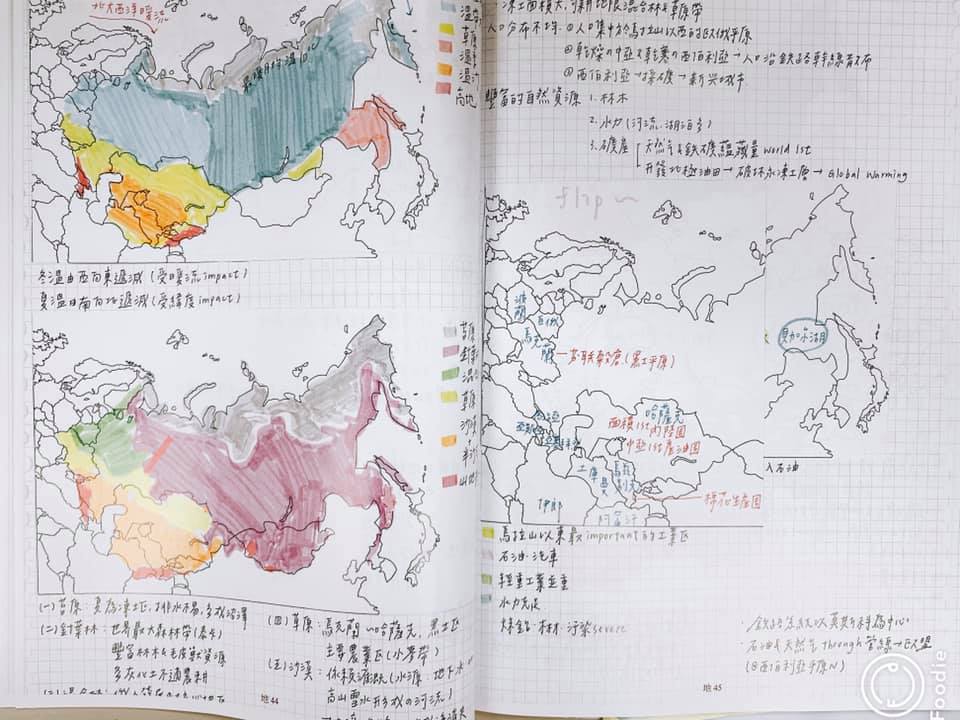 北大西洋暖流
高地
冬溫由西向東遞減 (受暖流impact)
夏溫由南向北遞減 (受緯度impact)
(一) 苔原: 夏為凍土區, 排水不易, 多成沼澤
(二) 針葉林: 世界最大森林帶
豐富林木&毛皮獸資源
多灰化土不適農耕
(四) 草原: 烏克蘭~哈薩克, 黑土區
主要農業區(小麥帶)
(五) 沙漠: 依賴灌溉(水源: 地下水
高山雪水形成の河流)
地 44
凍土面積大, 可耕地限混合林&草原帶
人口分布不均: ①人口集中於烏拉山以西的歐俄平原
②乾燥の中亞&乾寒の西伯利亞→人口沿鐵路幹線散布
③西伯利亞→採礦→新興城市
豐富的自然資源 1. 林木
2. 水力 (河流、湖泊多)
3. 礦產 天然氣&鐵礦蘊藏量World 1st
開發北極油田→破壞永凍土層→Global Warming
flap~
波蘭
白俄
烏克蘭
前蘇聯穀倉 (黑土平原)
貝加爾湖
哈薩克
面積1st內陸國
中亞1st產油國
土庫曼
烏茲別克
棉花生產國
伊朗
阿富汗
石油
烏拉山以東最important的工業區
石油、汽車
輕重工業並重
水力充沛
污染severe
鐵路系統以莫斯科為中心
石油&天然氣Through管線→歐盟
(西西伯利亞平原N)
地 45
Foodie